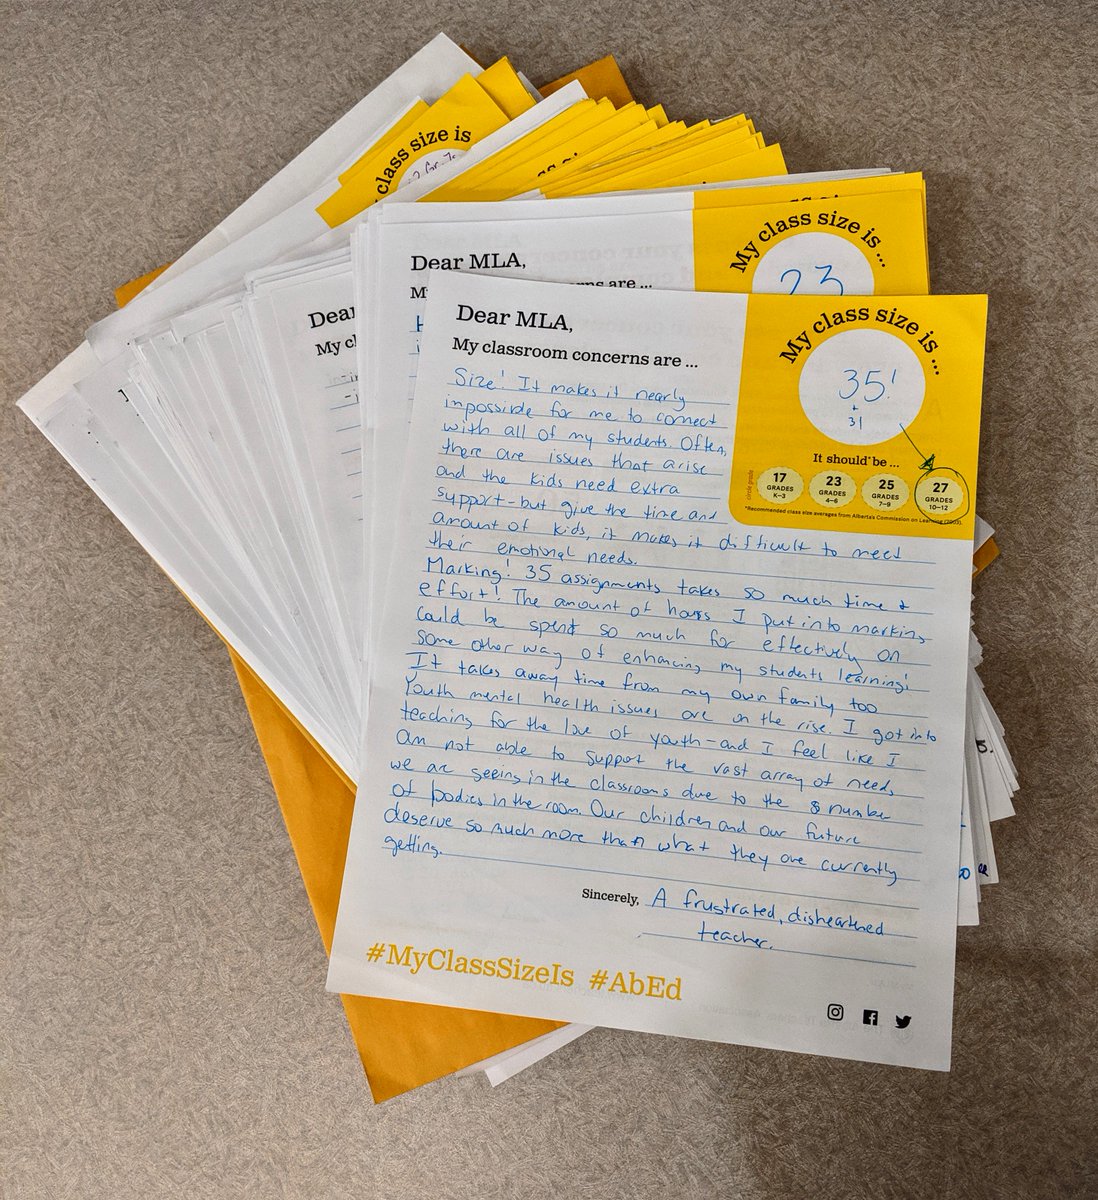 class size is
Dear MLA,
My class size is ...
23
Dear MLA,
My classroom concerns are ...
My class size is ...
35!
+
31
It should* be ...
circle grade
17
GRADES
K–3
23
GRADES
4–6
25
GRADES
7–9
27
GRADES
10–12
*Recommended class size averages from Alberta's Commission on Learning (2003).
Size! It makes it nearly
impossible for me to connect
with all of my students. Often,
there are issues that arise
and the kids need extra
support - but give the time and
amount of kids, it makes it difficult to meet
their emotional needs.
Marking! 35 assignments takes so much time +
effort! The amount of hours I put into marking
could be spent so much for effectively on
some other way of enhancing my students learning!
It takes away time from my own family too
Youth mental health issues are on the rise. I got into
teaching for the love of youth - and I feel like I
am not able to support the vast array of needs
we are seeing in the classrooms due to the number
of bodies in the room. Our children and our future
deserve so much more than what they are currently
getting.
Sincerely, A frustrated, disheartened
teacher.
#MyClassSizeIs #AbEd